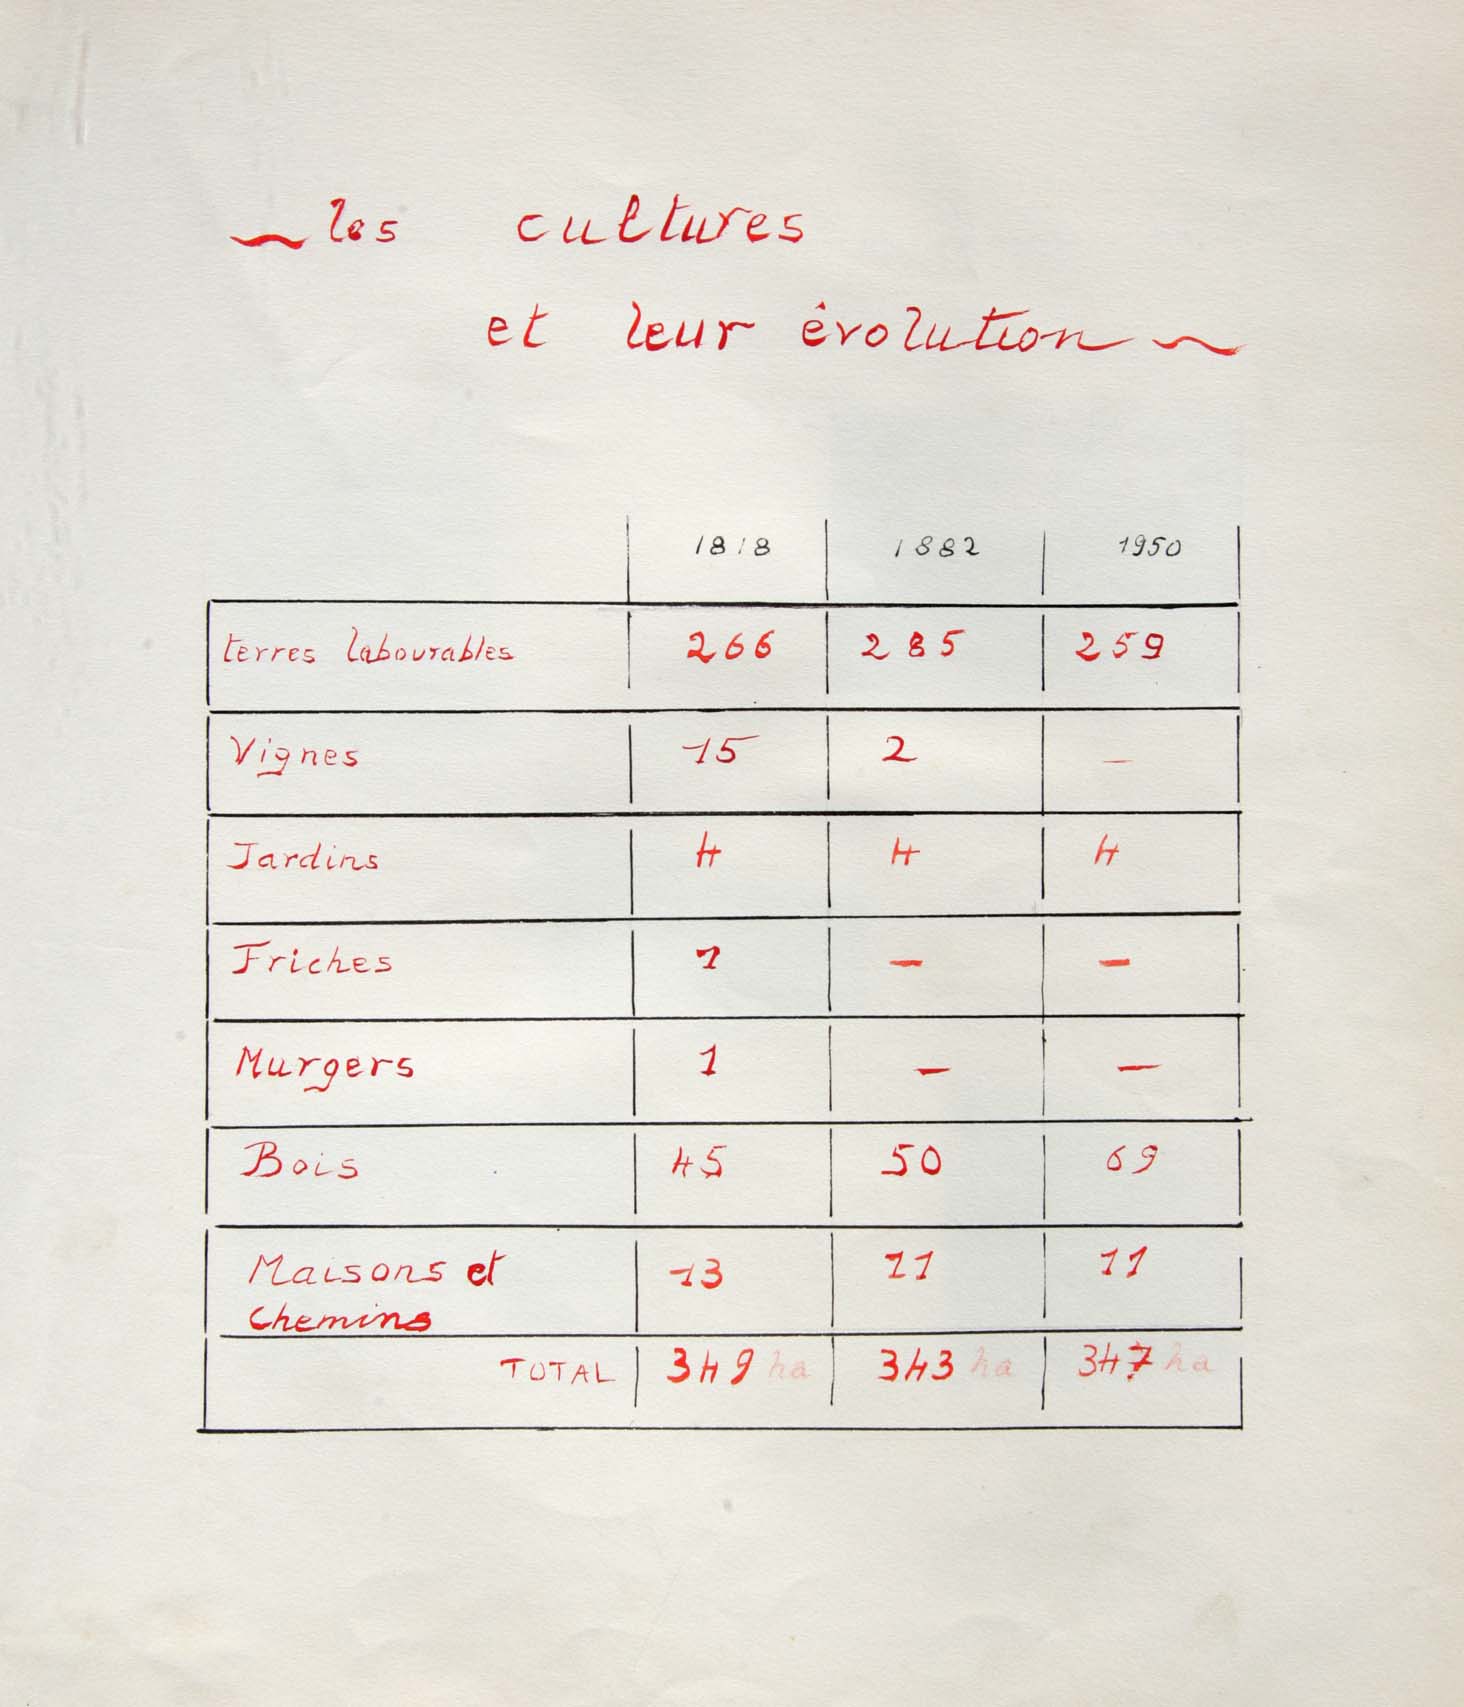 les cultures
et leur évolution
1818 1882 1950
terres labourables 266 285 259
Vignes 15 2 —
Jardins 4 4 4
Friches 1 — —
Murgers 1 — —
Bois 45 50 69
Maisons et 13 11 11
chemins
TOTAL 349 ha 343 ha 347 ha